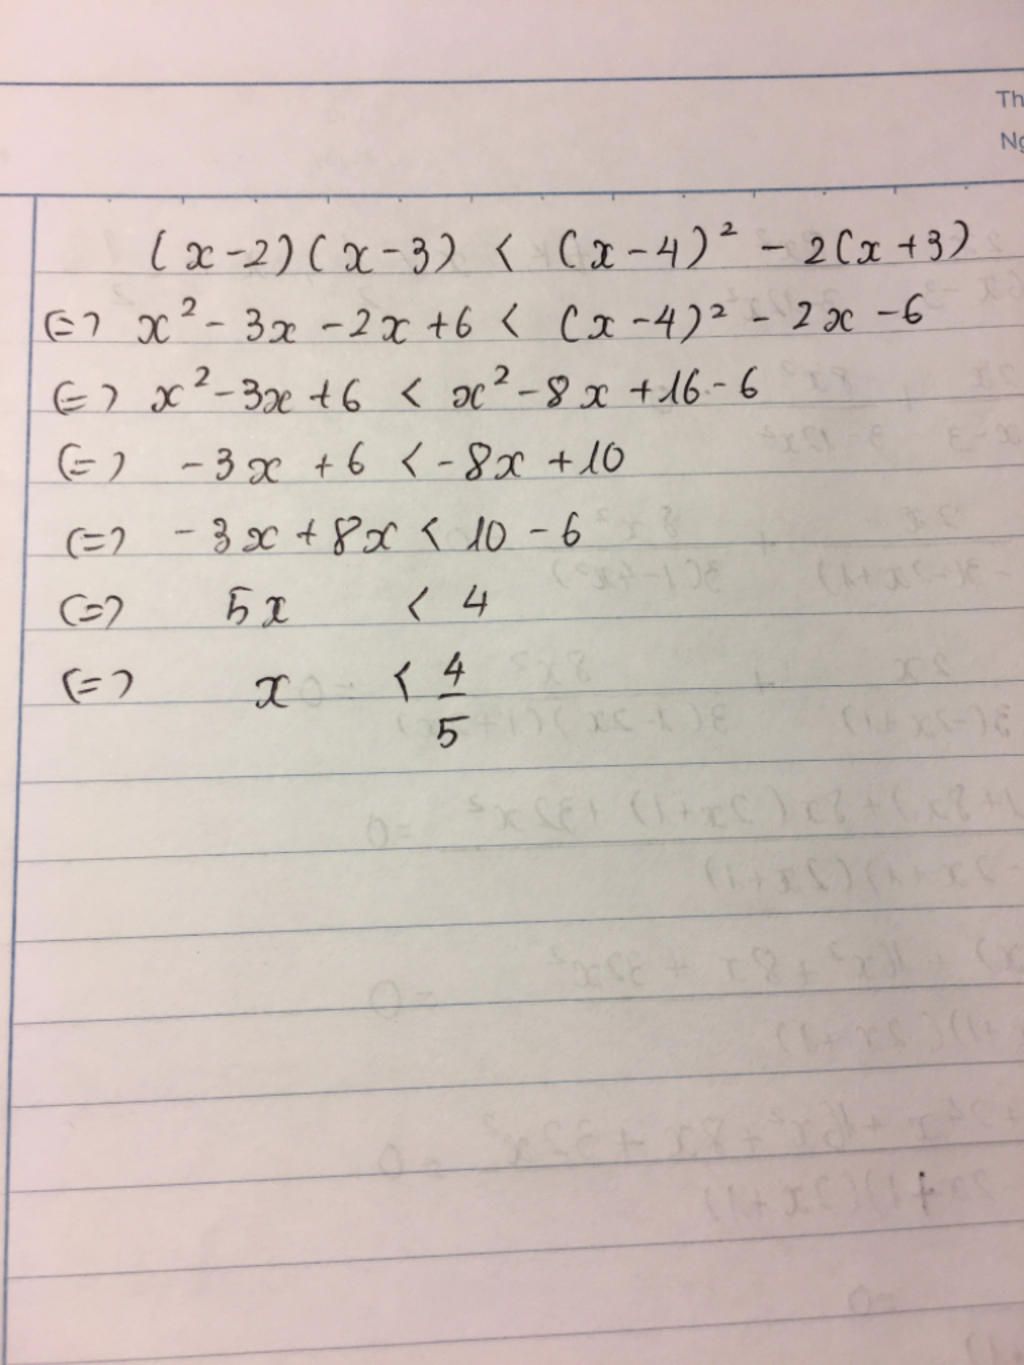 Th
Ng
(x-2)(x-3) < (x-4)² - 2(x+3)
(=) x² - 3x - 2x + 6 < (x-4)² - 2x - 6
(=) x² - 3x + 6 < x² - 8x + 16 - 6
(=) -3x + 6 < -8x + 10
(=) -3x + 8x < 10 - 6
(=) 5x < 4
(=) x < 4/5